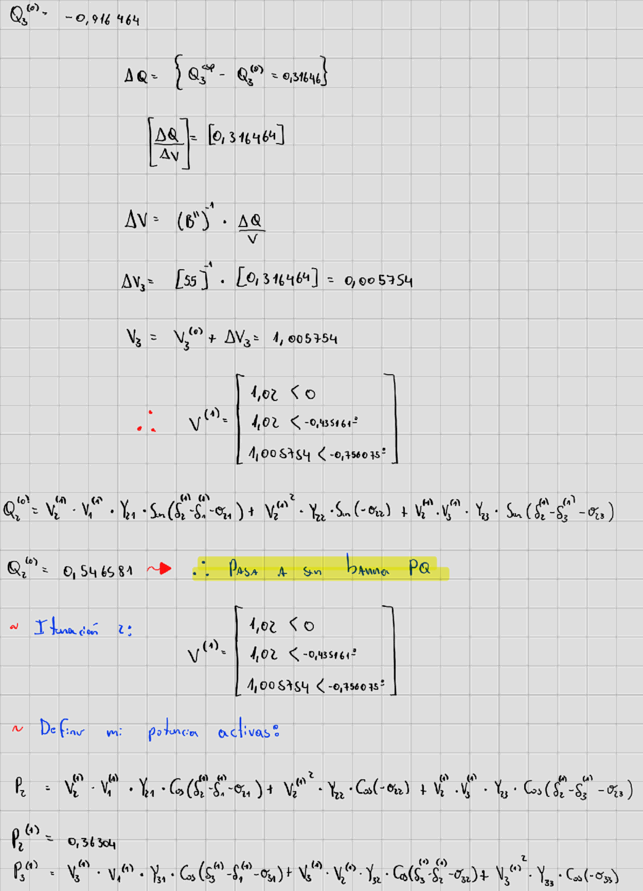 Q₃⁽⁰⁾ = -0,916 464
ΔQ = { Q₃ᵉˢᵖ - Q₃⁽⁰⁾ = 0,31646}
[ΔQ/ΔV] = [0,316464]
ΔV = (B'')⁻¹ · ΔQ/V
ΔV₃ = [55]⁻¹ · [0,316464] = 0,005754
V₃ = V₃⁽⁰⁾ + ΔV₃ = 1,005754
∴ V⁽¹⁾ = [1,02 < 0
1,02 < -0,435161°
1,005754 < -0,756075°]
Q₂⁽⁰⁾ = V₂⁽¹⁾ · V₁⁽¹⁾ · Y₂₁ · Sen(δ₂⁽¹⁾-δ₁⁽¹⁾-σ₂₁) + V₂⁽¹⁾² · Y₂₂ · Sen(-σ₂₂) + V₂⁽¹⁾ · V₃⁽¹⁾ · Y₂₃ · Sen(δ₂⁽¹⁾-δ₃⁽¹⁾-σ₂₃)
Q₂⁽⁰⁾ = 0,546581 ⇝ ∴ PASA A ser bArra PQ
~ Iteración 2:
V⁽¹⁾ = [1,02 < 0
1,02 < -0,435161°
1,005754 < -0,756075°]
~ Definir mi potencia activas:
P₂ = V₂⁽¹⁾ · V₁⁽¹⁾ · Y₂₁ · Cos(δ₂⁽¹⁾-δ₁⁽¹⁾-σ₂₁) + V₂⁽¹⁾² · Y₂₂ · Cos(-σ₂₂) + V₂⁽¹⁾ · V₃⁽¹⁾ · Y₂₃ · Cos(δ₂⁽¹⁾-δ₃⁽¹⁾-σ₂₃)
P₂⁽¹⁾ = 0,36304
P₃⁽¹⁾ = V₃⁽¹⁾ · V₁⁽¹⁾ · Y₃₁ · Cos(δ₃⁽¹⁾-δ₁⁽¹⁾-σ₃₁) + V₃⁽¹⁾ · V₂⁽¹⁾ · Y₃₂ · Cos(δ₃⁽¹⁾-δ₂⁽¹⁾-σ₃₂) + V₃⁽¹⁾² · Y₃₃ · Cos(-σ₃₃)